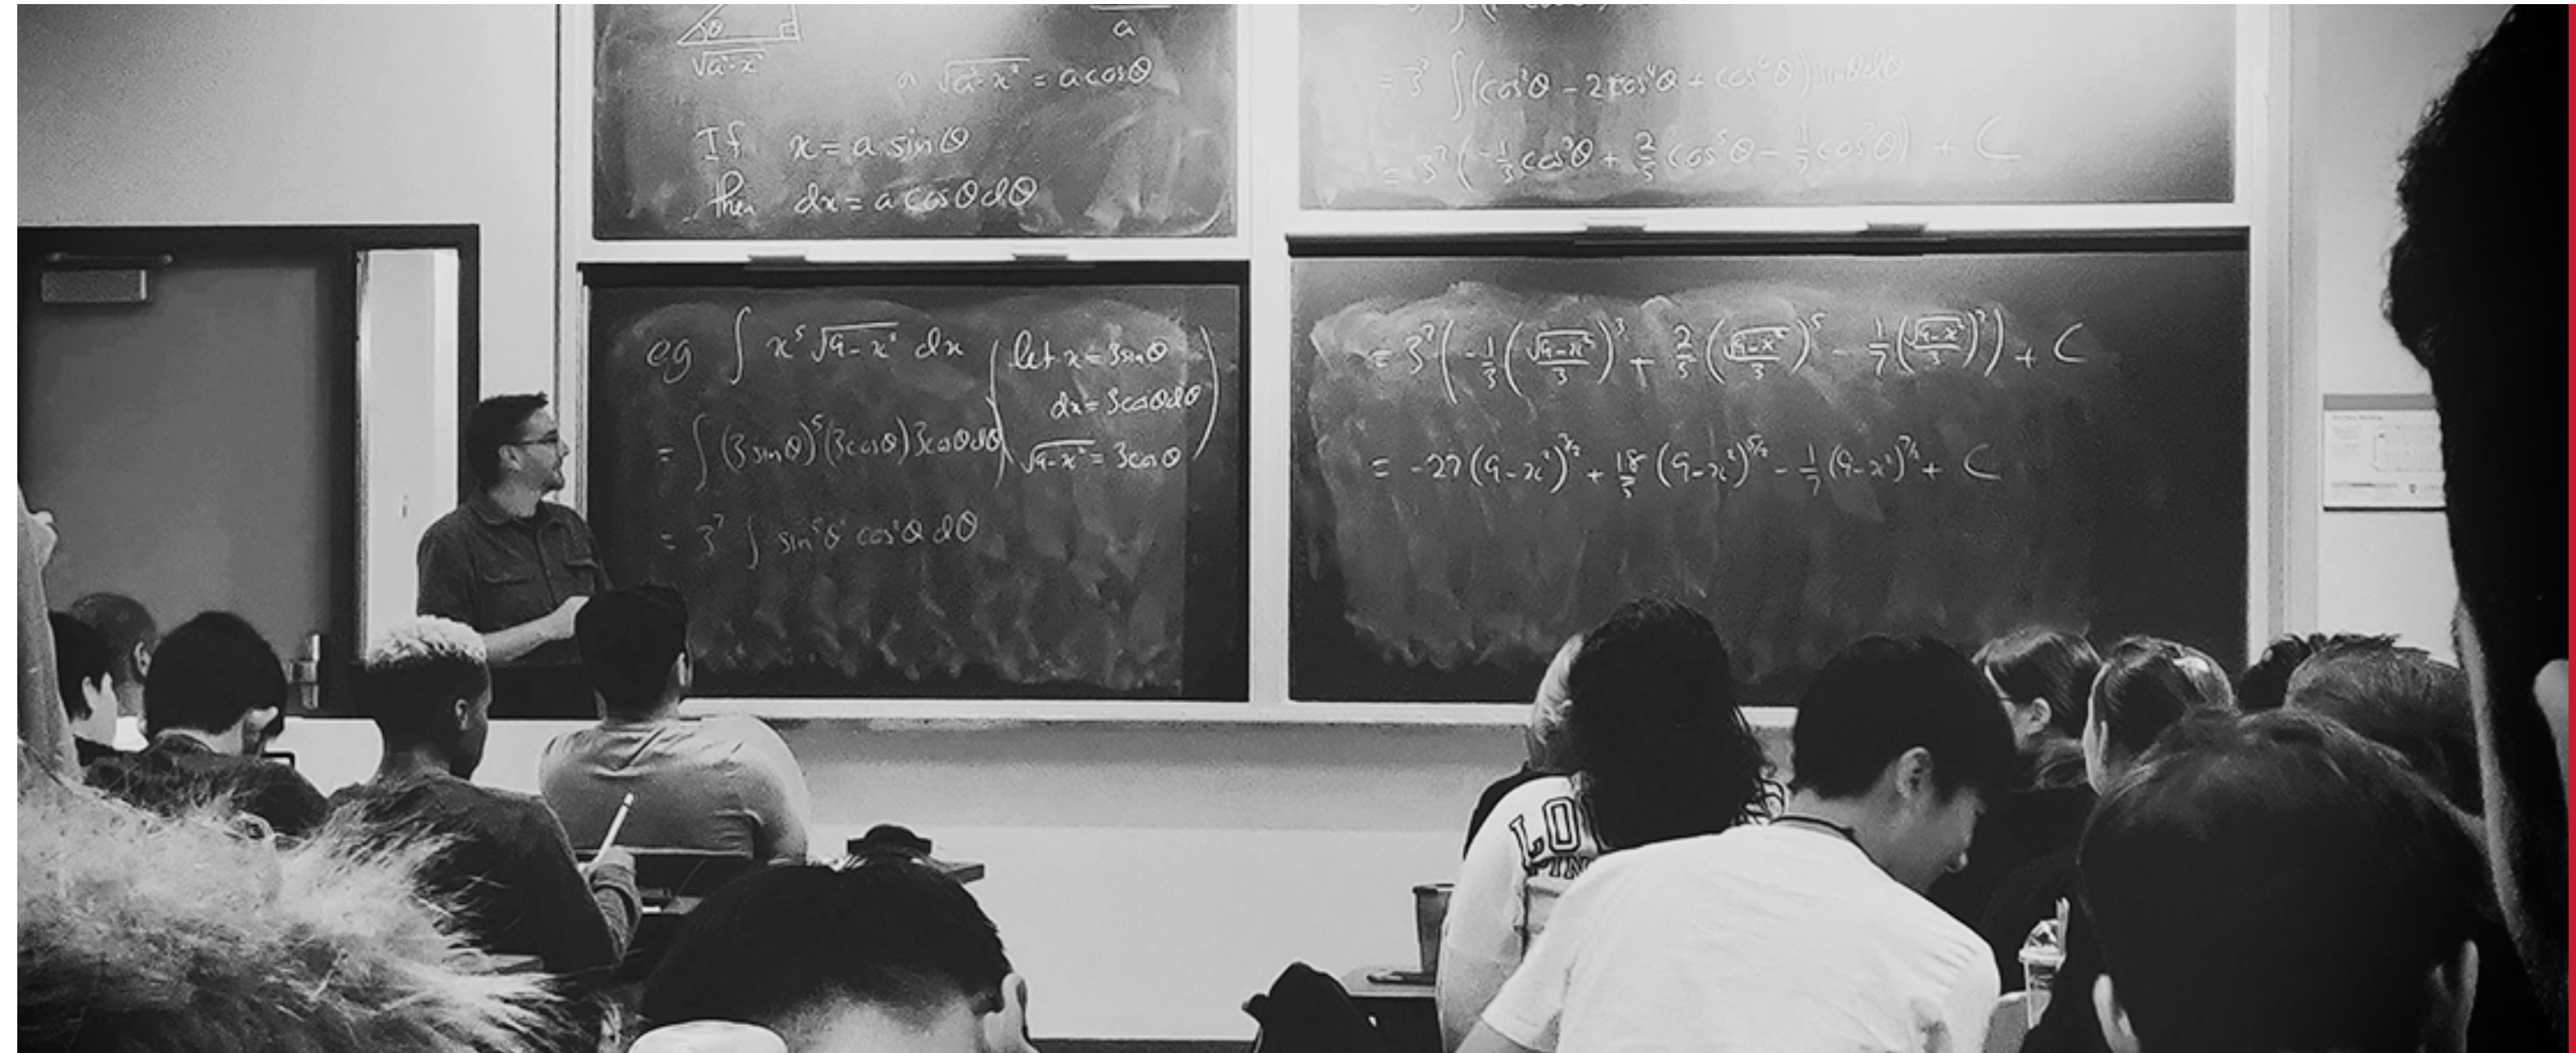 θ
√a²-x²
a
√a²-x² = a cosθ
If x = a sinθ
then dx = a cosθ dθ
eg ∫ x⁵ √9-x² dx (let x = 3sinθ
dx = 3cosθdθ
√9-x² = 3cosθ)
= ∫ (3sinθ)⁵(3cosθ)3cosθdθ
= 3⁷ ∫ sin⁵θ cos²θ dθ
= 3⁷ ∫(cos²θ - 2cos⁴θ + cos⁶θ) sinθdθ
= 3⁷ (-1/3 cos³θ + 2/5 cos⁵θ - 1/7 cos⁷θ) + C
= 3⁷ (-1/3 (√9-x²/3)³ + 2/5 (√9-x²/3)⁵ - 1/7 (√9-x²/3)⁷) + C
= -27 (9-x²)^3/2 + 18/5 (9-x²)^5/2 - 1/7 (9-x²)^7/2 + C
LO